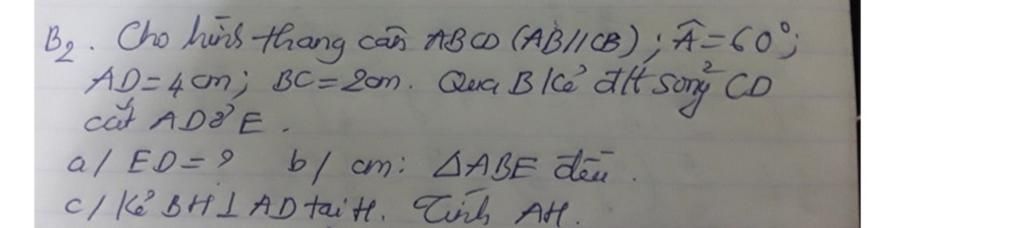 B2. Cho hình thang cân ABCD (AB//CB); Â = 60°;
AD = 4cm; BC = 2cm. Qua B kẻ đ/t song² CD
cắt AD ở E.
a/ ED = ? b/ cm: ΔABE đều.
c/ Kẻ BH ⊥ AD tại H. Tính AH.